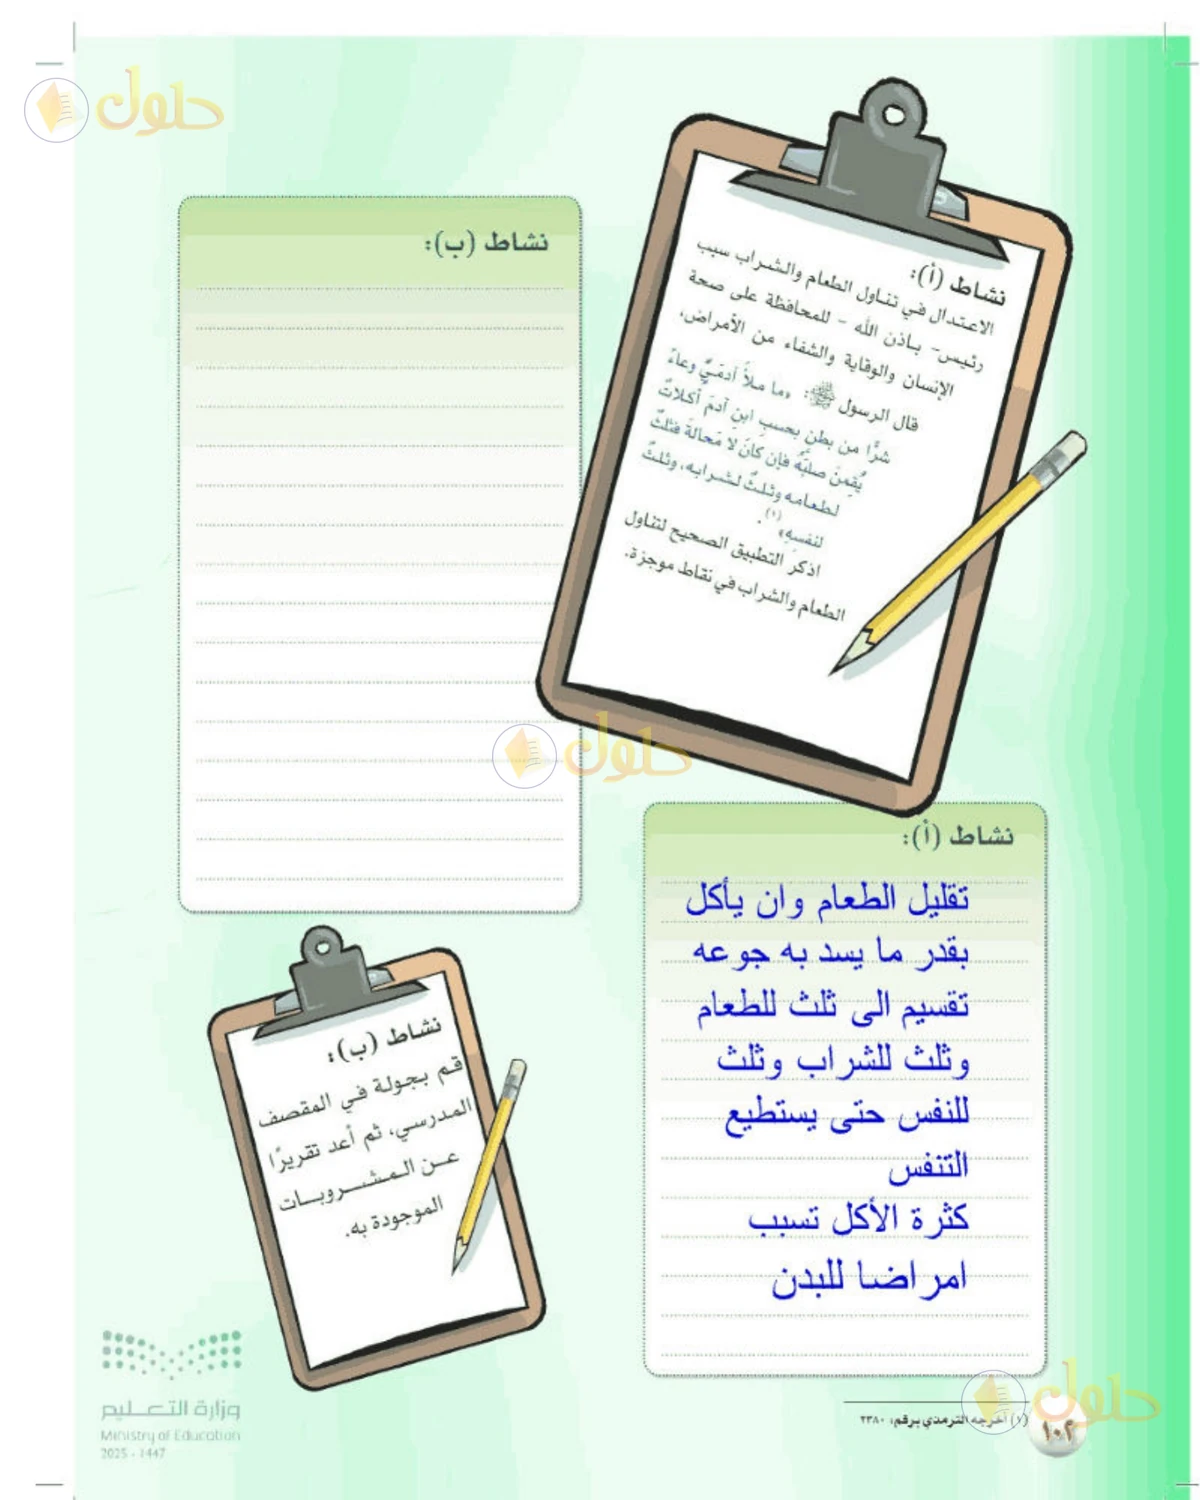 حلول
نشاط (أ):
الاعتدال في تناول الطعام والشراب سبب
رئيس- بإذن الله - للمحافظة على صحة
الإنسان والوقاية والشفاء من الأمراض،
قال الرسول ﷺ: «ما ملأَ آدميٌّ وعاءً
شرًّا من بطنٍ بحسبِ ابنِ آدمَ أكلاتٌ
يُقِمنَ صلبَهُ فإن كانَ لا مَحالةَ فثلثٌ
لطعامه وثلثٌ لشرابه، وثلثٌ
لنفسهِ» (١).
اذكر التطبيق الصحيح لتناول
الطعام والشراب في نقاط موجزة.
نشاط (ب):
حلول
نشاط (أ):
تقليل الطعام وان يأكل
بقدر ما يسد به جوعه
تقسيم الى ثلث للطعام
وثلث للشراب وثلث
للنفس حتى يستطيع
التنفس
كثرة الأكل تسبب
امراضا للبدن
نشاط (ب):
قم بجولة في المقصف
المدرسي، ثم أعد تقريرًا
عن المشروبات
الموجودة به.
(١) أخرجه الترمذي برقم: ٢٣٨٠
حلول
١٠٢
وزارة التعليم
Ministry of Education
2025 - 1447